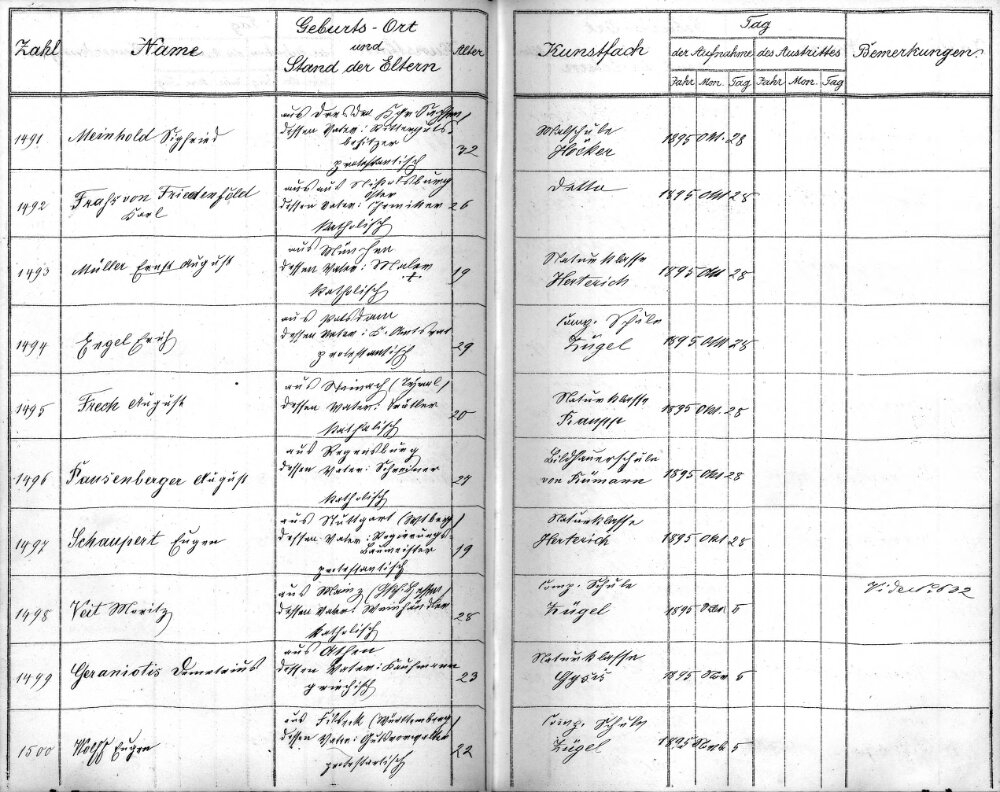 Zahl Name Geburts-Ort und Stand der Eltern Alter Kunstfach Tag der Aufnahme des Austrittes Bemerkungen
Jahr Mon. Tag Jahr Mon. Tag
1491 Meinhold Sigfried
aus Dresden
dessen Vater: Rittergutsbesitzer
protestantisch
32
Malschule
Höcker
1895 Okt. 28
1492 Frahs von Friedenfeld
Karl
aus Nikolsburg
dessen Vater:
katholisch
26
detto
1895 Okt 28
1493 Müller Ernst August
aus München
dessen Vater: Maler †
katholisch
19
Naturklasse
Herterich
1895 Okt 28
1494 Engel Erich
aus Potsdam
dessen Vater: K. Amtsrat
protestantisch
29
Comp. Schule
Zügel
1895 Okt 28
1495 Frech August
aus Steinach (Tyrol)
dessen Vater:
katholisch
20
Naturklasse
Raupp
1895 Okt. 28
1496 Pausenberger August
aus Regensburg
dessen Vater: Schreiner
katholisch
27
Bildhauerschule
von Rümann
1895 Okt 28
1497 Schaupert Eugen
aus Stuttgart (Wtberg)
dessen Vater: Regierungs-
Baumeister
protestantisch
19
Naturklasse
Herterich
1895 Okt 28
1498 Veit Moritz
aus Mainz
dessen Vater: Weinhändler
katholisch
28
Comp. Schule
Zügel
1895 Nov 5
1499 Geraniotis Demetrius
aus Athen
dessen Vater: Kaufmann
griechisch
23
Naturklasse
Gysis
1895 Nov 5
1500 Wolff Eugen
aus Filseck (Württemberg)
dessen Vater: Gutsverwalter
protestantisch
22
Comp. Schule
Zügel
1895 Novb 5